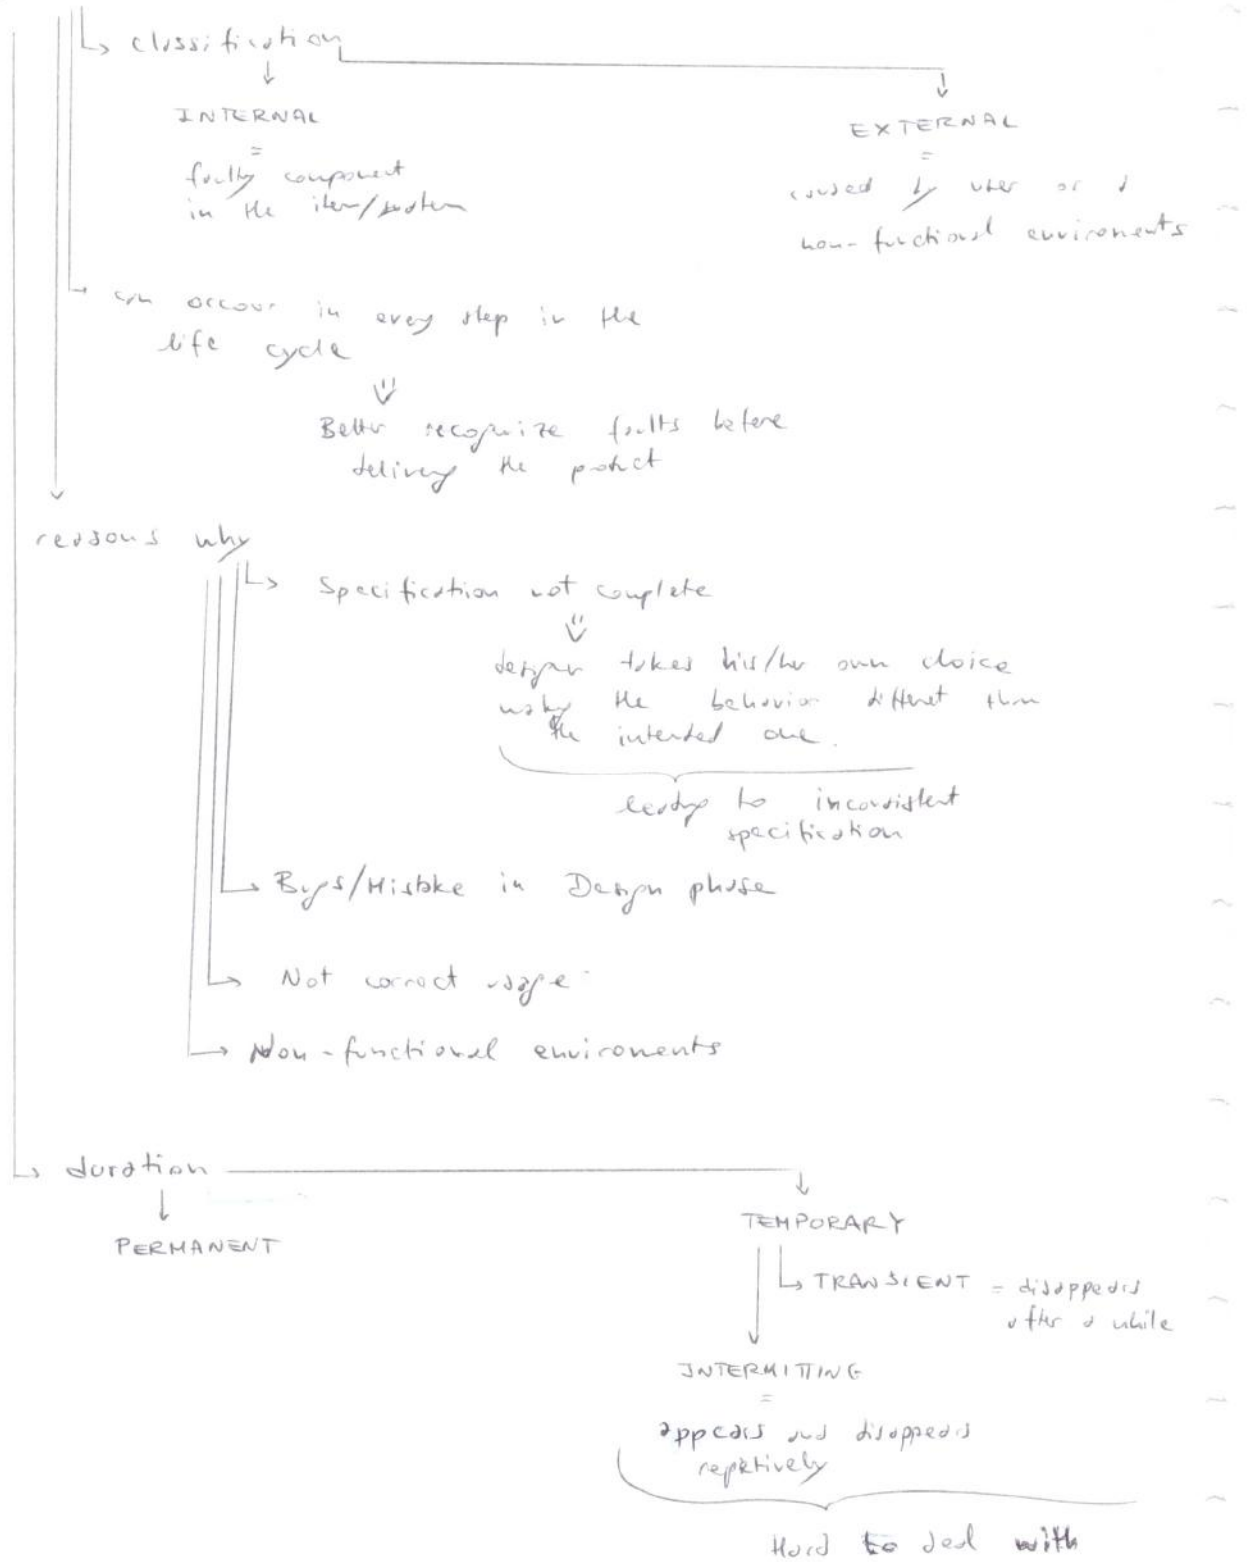 classification
INTERNAL
=
faulty component
in the item/system
EXTERNAL
=
caused by user or a
non-functional enviroments
can occour in every step in the
life cycle
Better recognize faults before
delivery the product
reasons why
Specification not complete
designer takes his/her own choice
making the behavior different than
the intended one.
leading to inconsistent
specification
Bugs/Mistake in Design phase
Not correct usage
Non-functional enviroments
duration
PERMANENT
TEMPORARY
TRANSIENT = disappears
after a while
INTERMITTING
=
appears and disappears
repetively
Hard to deal with